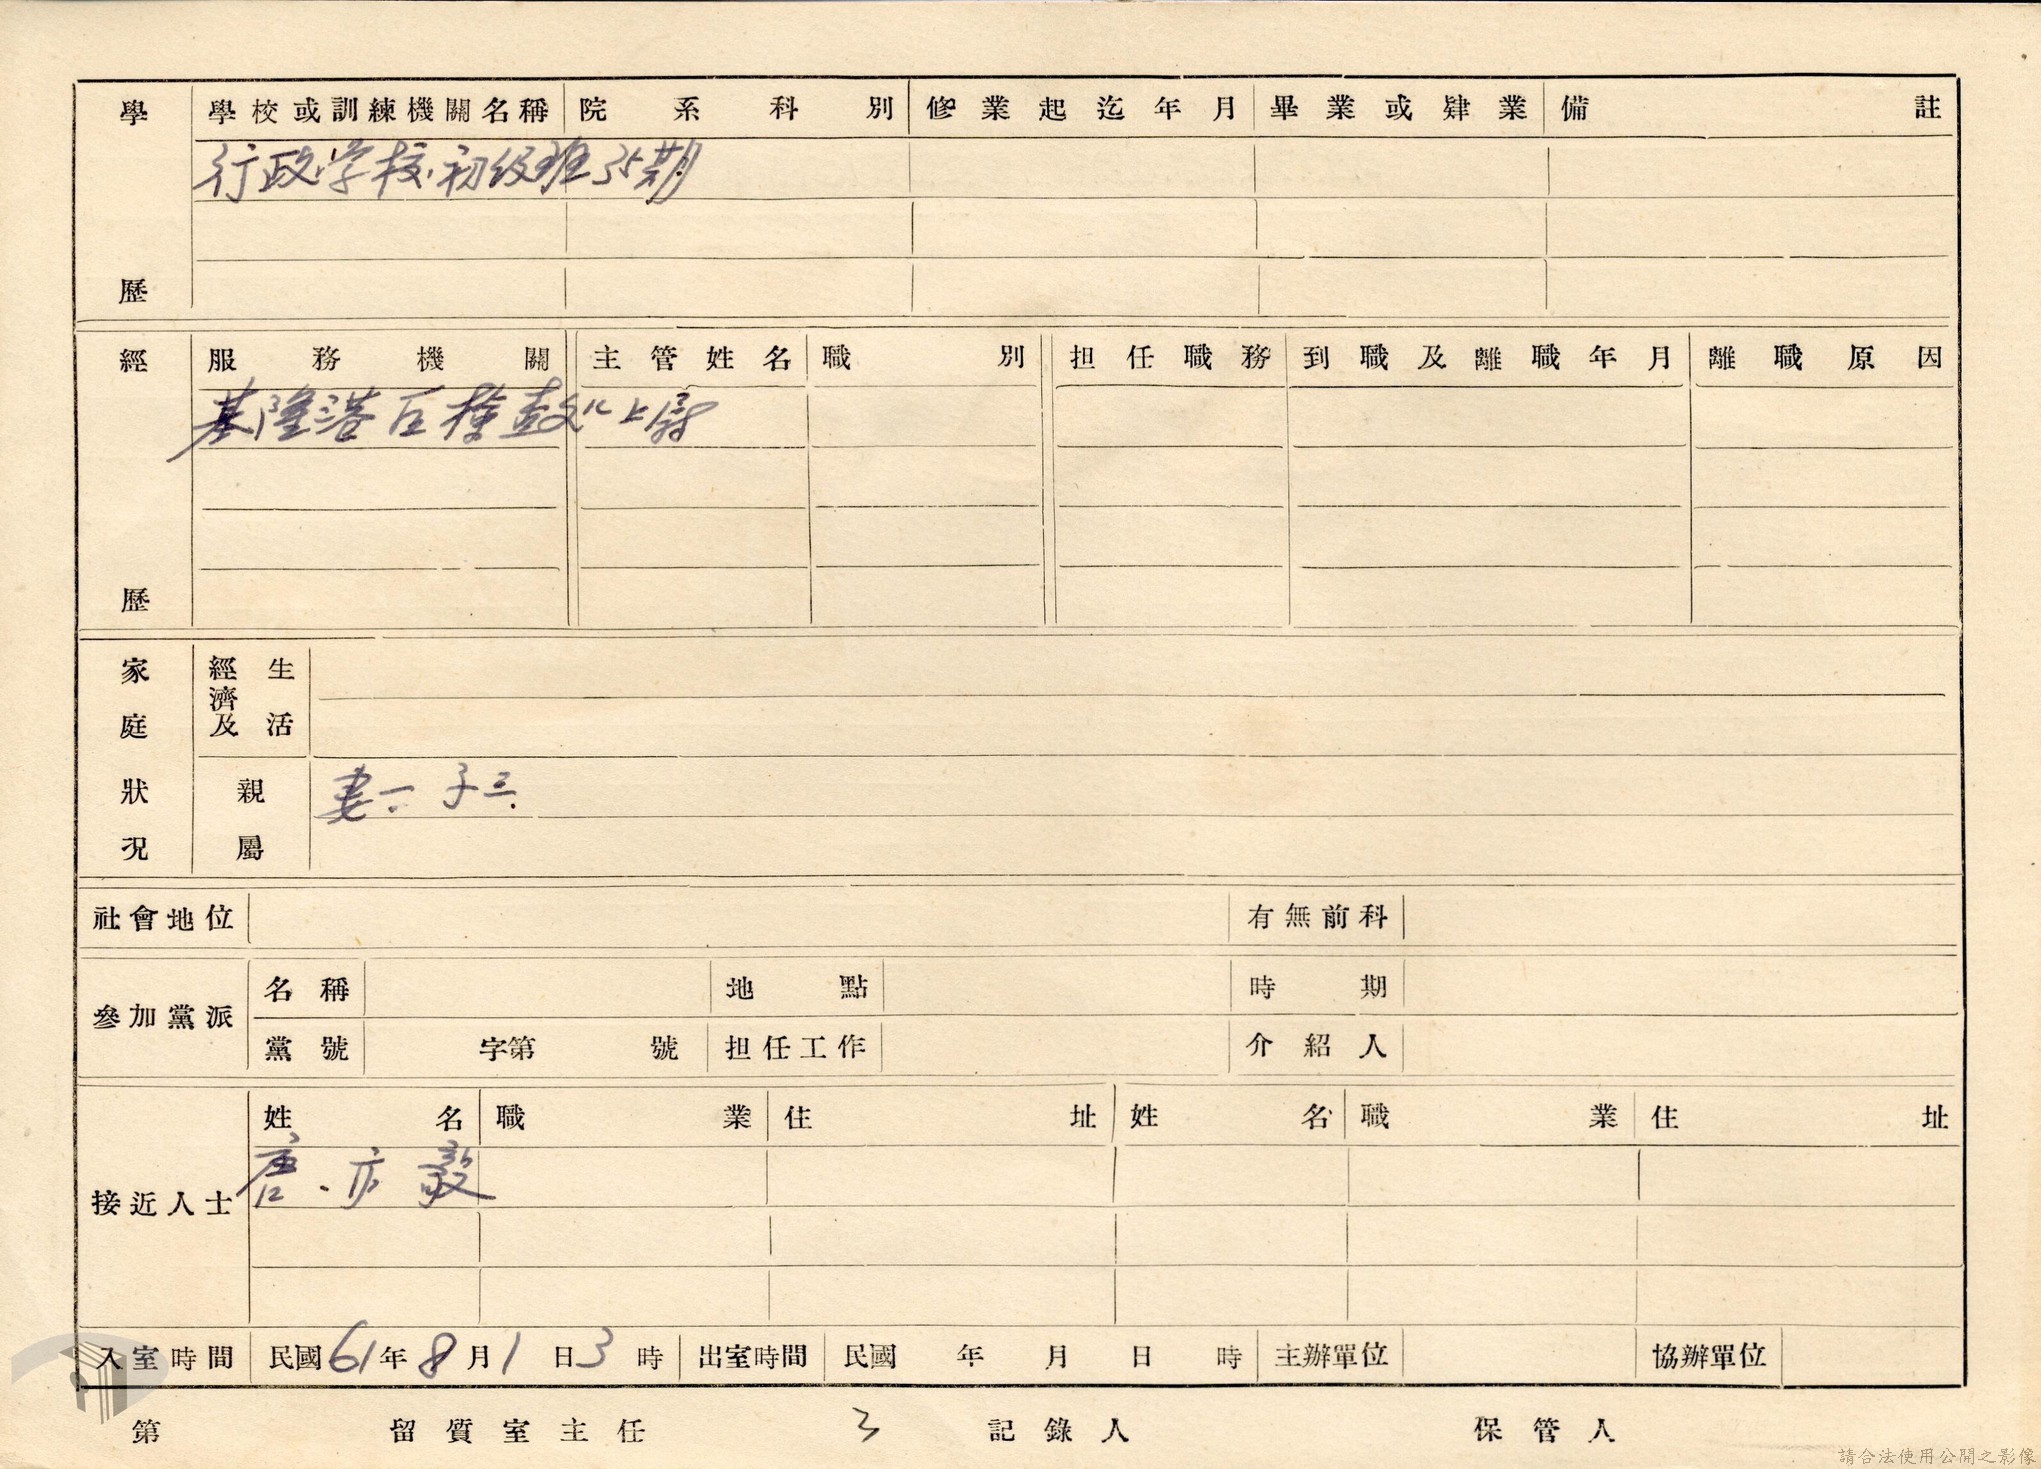 學歷 學校或訓練機關名稱 院系科別 修業起迄年月 畢業或肄業 備註
行政学校初级班35期
經歷 服務機關 主管姓名 職別 担任職務 到職及離職年月 離職原因
基隆港 上尉
家庭狀況 經濟及生活
親屬 妻一 子三
社會地位 有無前科
參加黨派 名稱 地點 時期
黨號 字第 號 担任工作 介紹人
接近人士 姓名 職業 住址 姓名 職業 住址
唐 毅
入室時間 民國61年8月1日3時 出室時間 民國 年 月 日 時 主辦單位 協辦單位
第 留質室主任 3 記錄人 保管人
請合法使用公開之影像